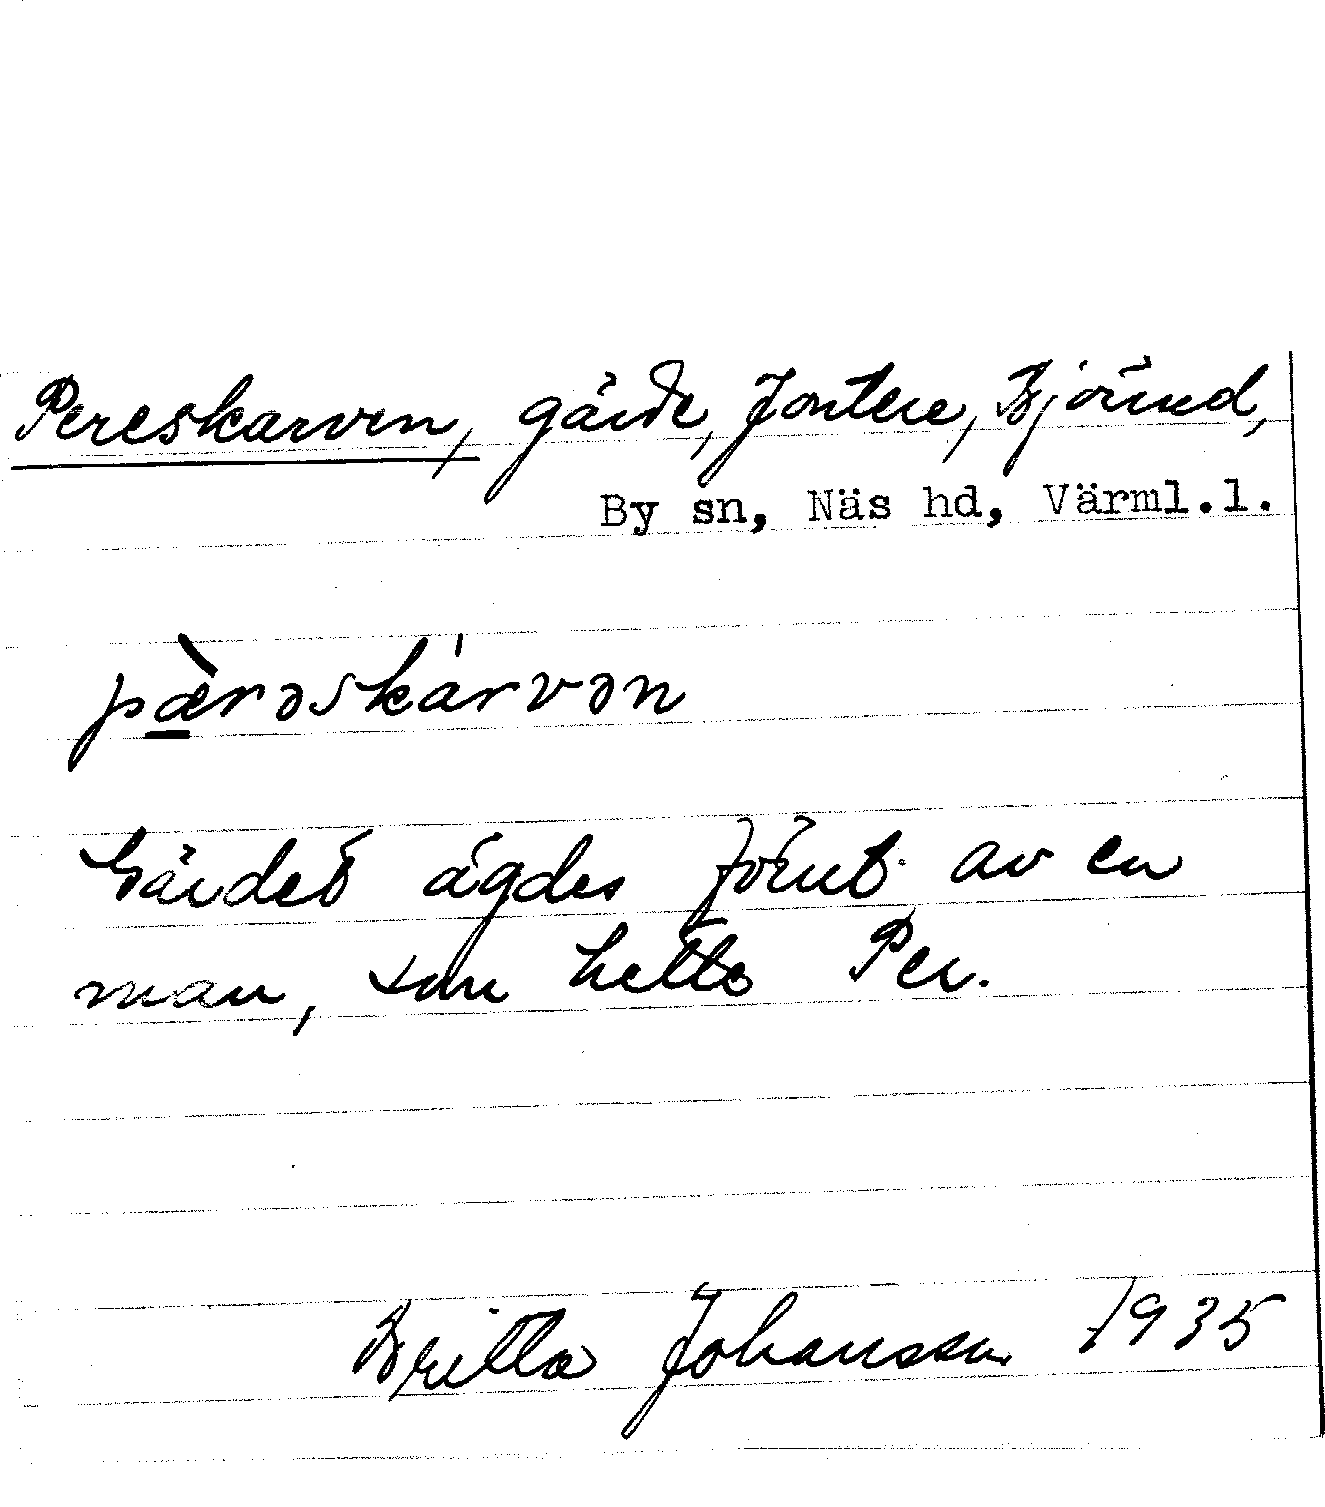 Pereskarven, gärde, Jontere, Björud,
By sn, Näs hd, Värml.l.
pæ̀rəskárvən
Gärdet ägdes förut av en
man, som hette Per.
Britta Johansson 1935